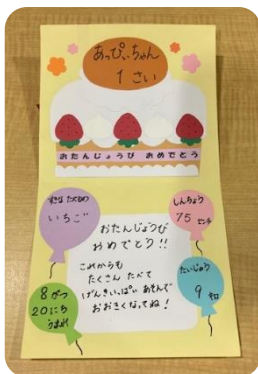 あっぴぃちゃん
1さい
おたんじょうび おめでとう
すきな たべもの
いちご
しんちょう
75 センチ
おたんじょうび
おめでとう!!
これからも
たくさん たべて
げんきいっぱい あそんで
おおきくなってね!
8がつ
20にち
うまれ
たいじゅう
9 キロ